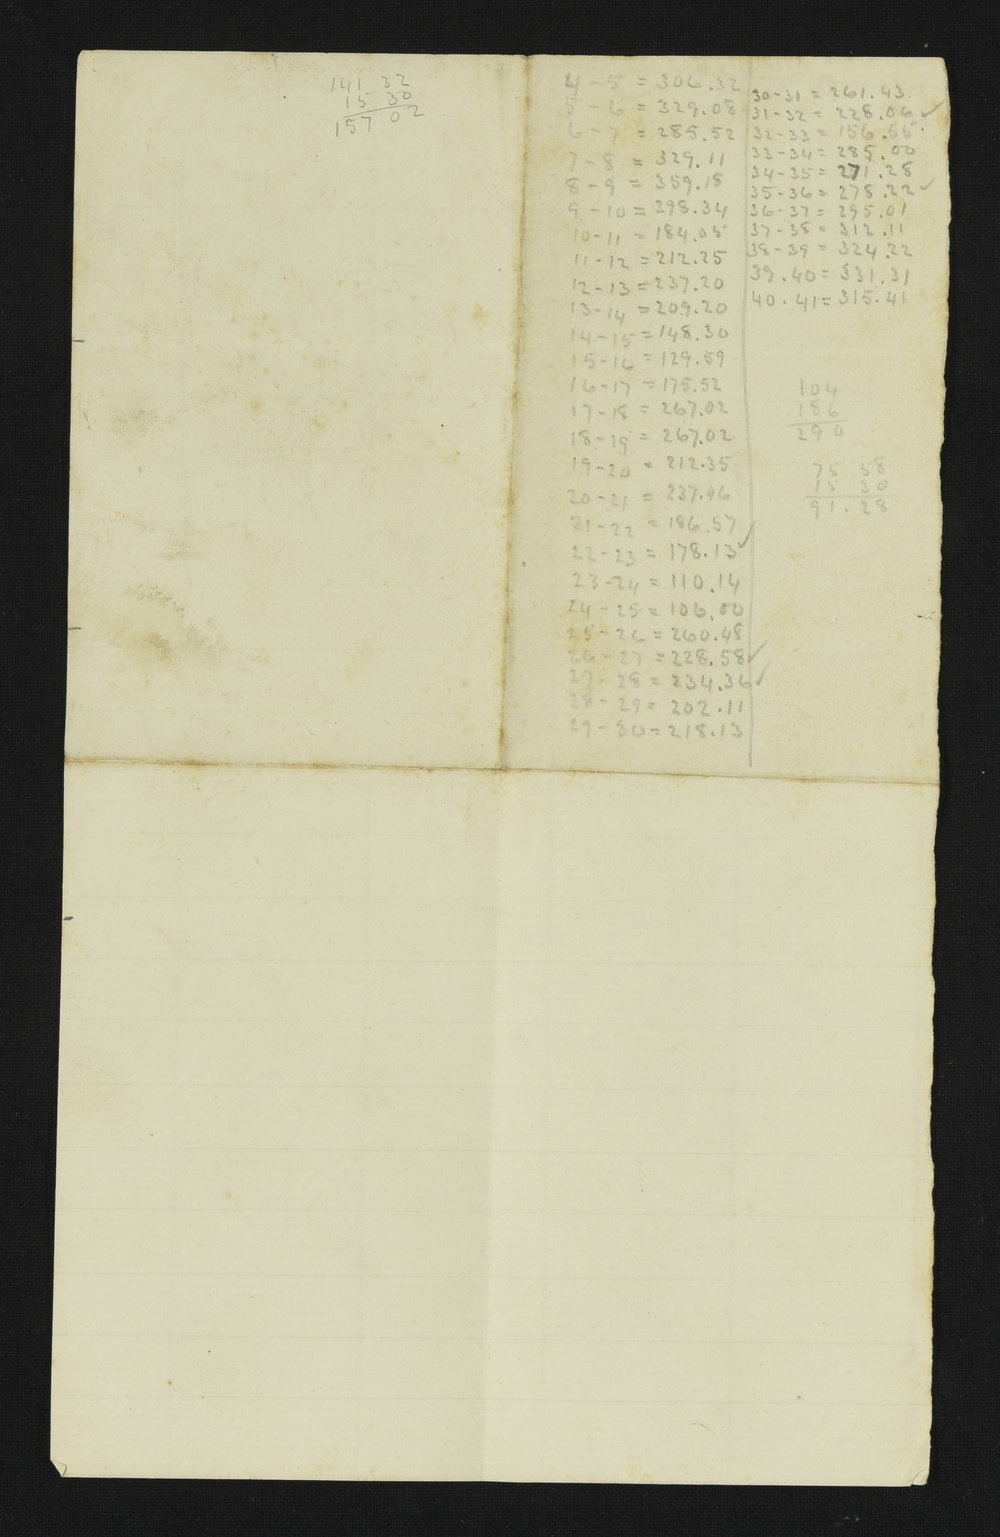 141 32
15 30
157 02
4-5 = 306.32
5-6 = 329.08
6-7 = 285.52
7-8 = 329.11
8-9 = 359.18
9-10 = 298.34
10-11 = 184.05
11-12 = 212.25
12-13 = 237.20
13-14 = 209.20
14-15 = 148.30
15-16 = 129.59
16-17 = 175.52
17-18 = 267.02
18-19 = 267.02
19-20 = 212.35
20-21 = 237.46
21-22 = 186.57
22-23 = 178.13 ✓
23-24 = 110.14
24-25 = 106.00
25-26 = 260.48
26-27 = 228.58 ✓
27-28 = 234.36 ✓
28-29 = 202.11
29-30 = 218.13
30-31 = 261.43
31-32 = 228.06 ✓
32-33 = 156.55
33-34 = 285.00
34-35 = 271.28
35-36 = 278.22 ✓
36-37 = 295.01
37-38 = 312.11
38-39 = 324.22
39.40 = 331.31
40.41 = 315.41
104
186
290
75 58
15 30
91.28